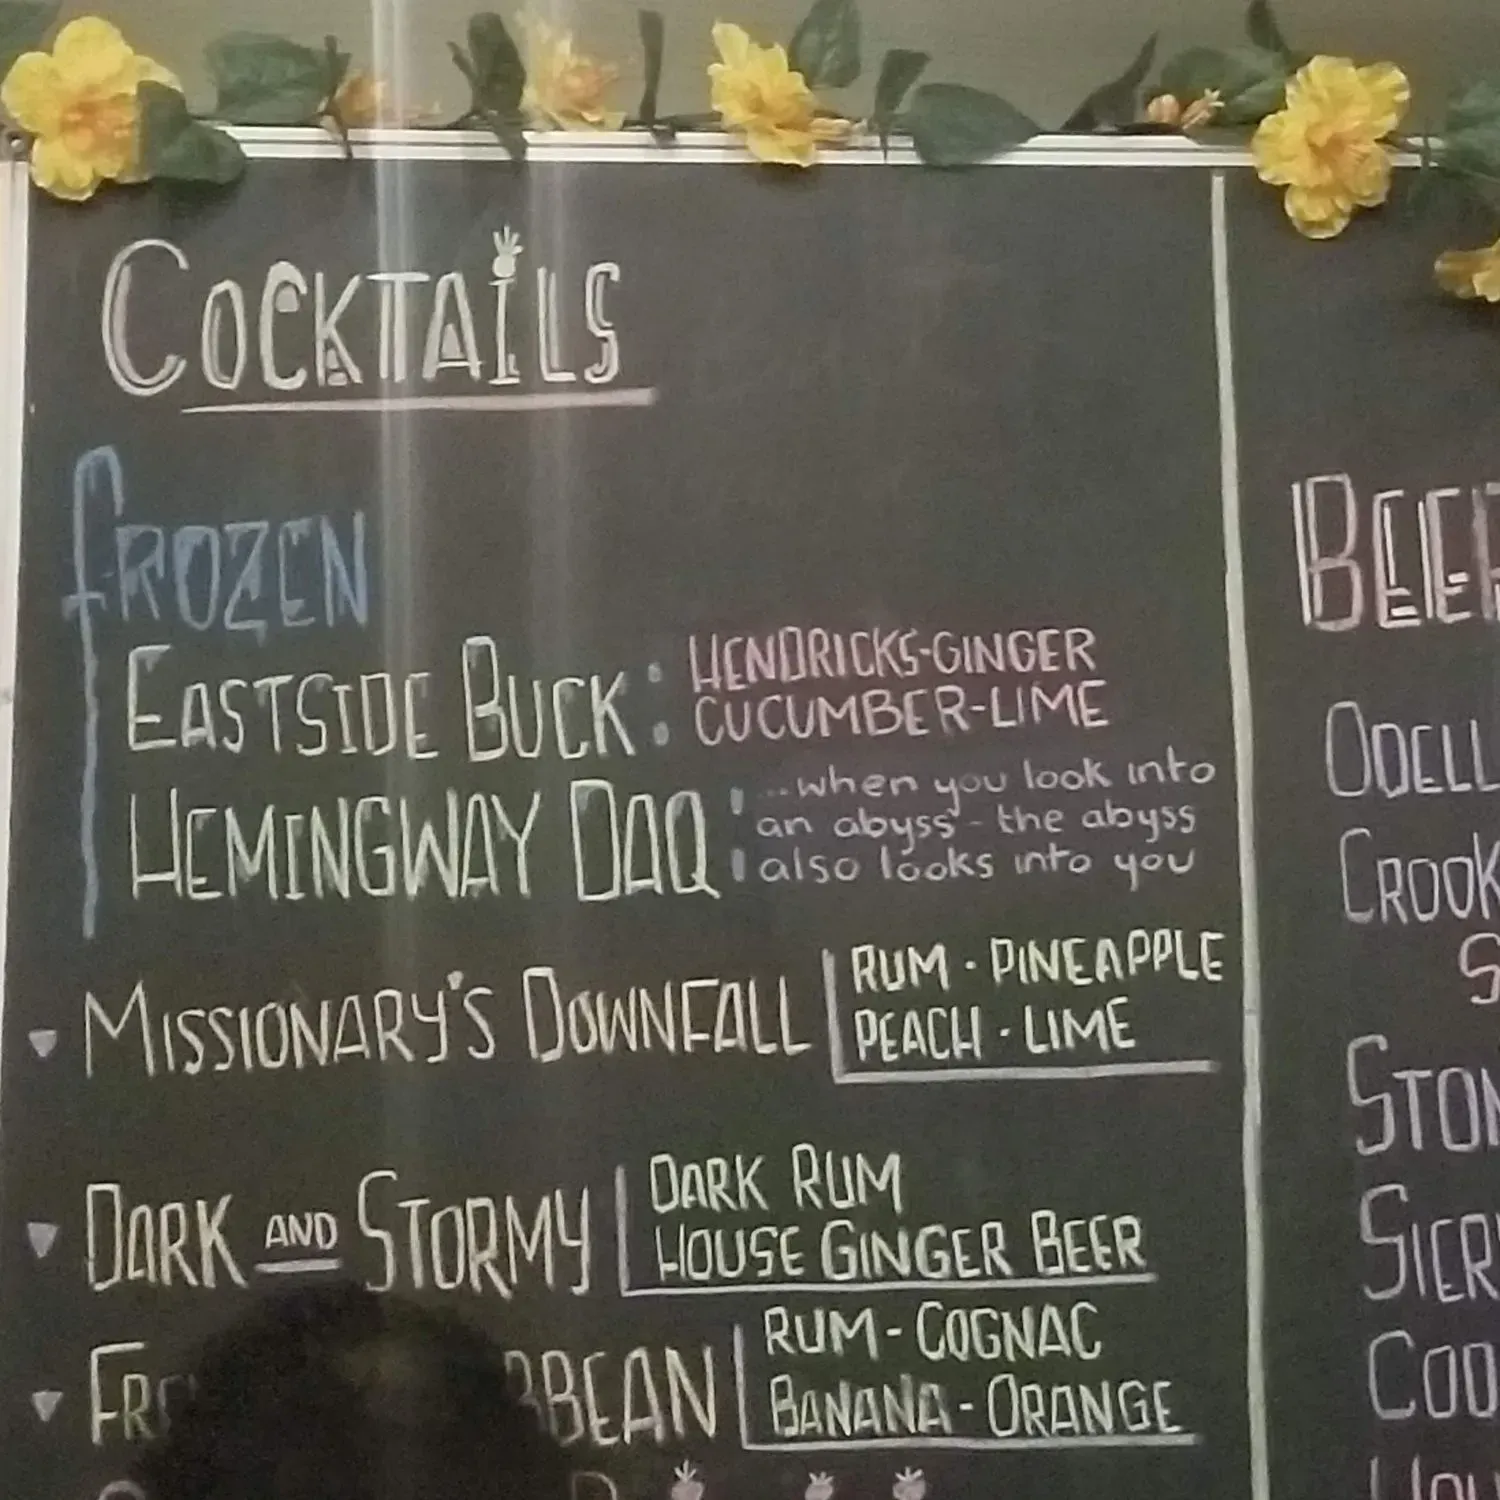 COCKTAILS
FROZEN
EASTSIDE BUCK:
HENDRICKS-GINGER
CUCUMBER-LIME
HEMINGWAY DAQ:
...when you look into
an abyss - the abyss
also looks into you
MISSIONARY'S DOWNFALL
RUM · PINEAPPLE
PEACH · LIME
DARK AND STORMY
DARK RUM
HOUSE GINGER BEER
RUM - COGNAC
BANANA - ORANGE
BEER
ODELL
CROOK
S
STON
SIER
COO